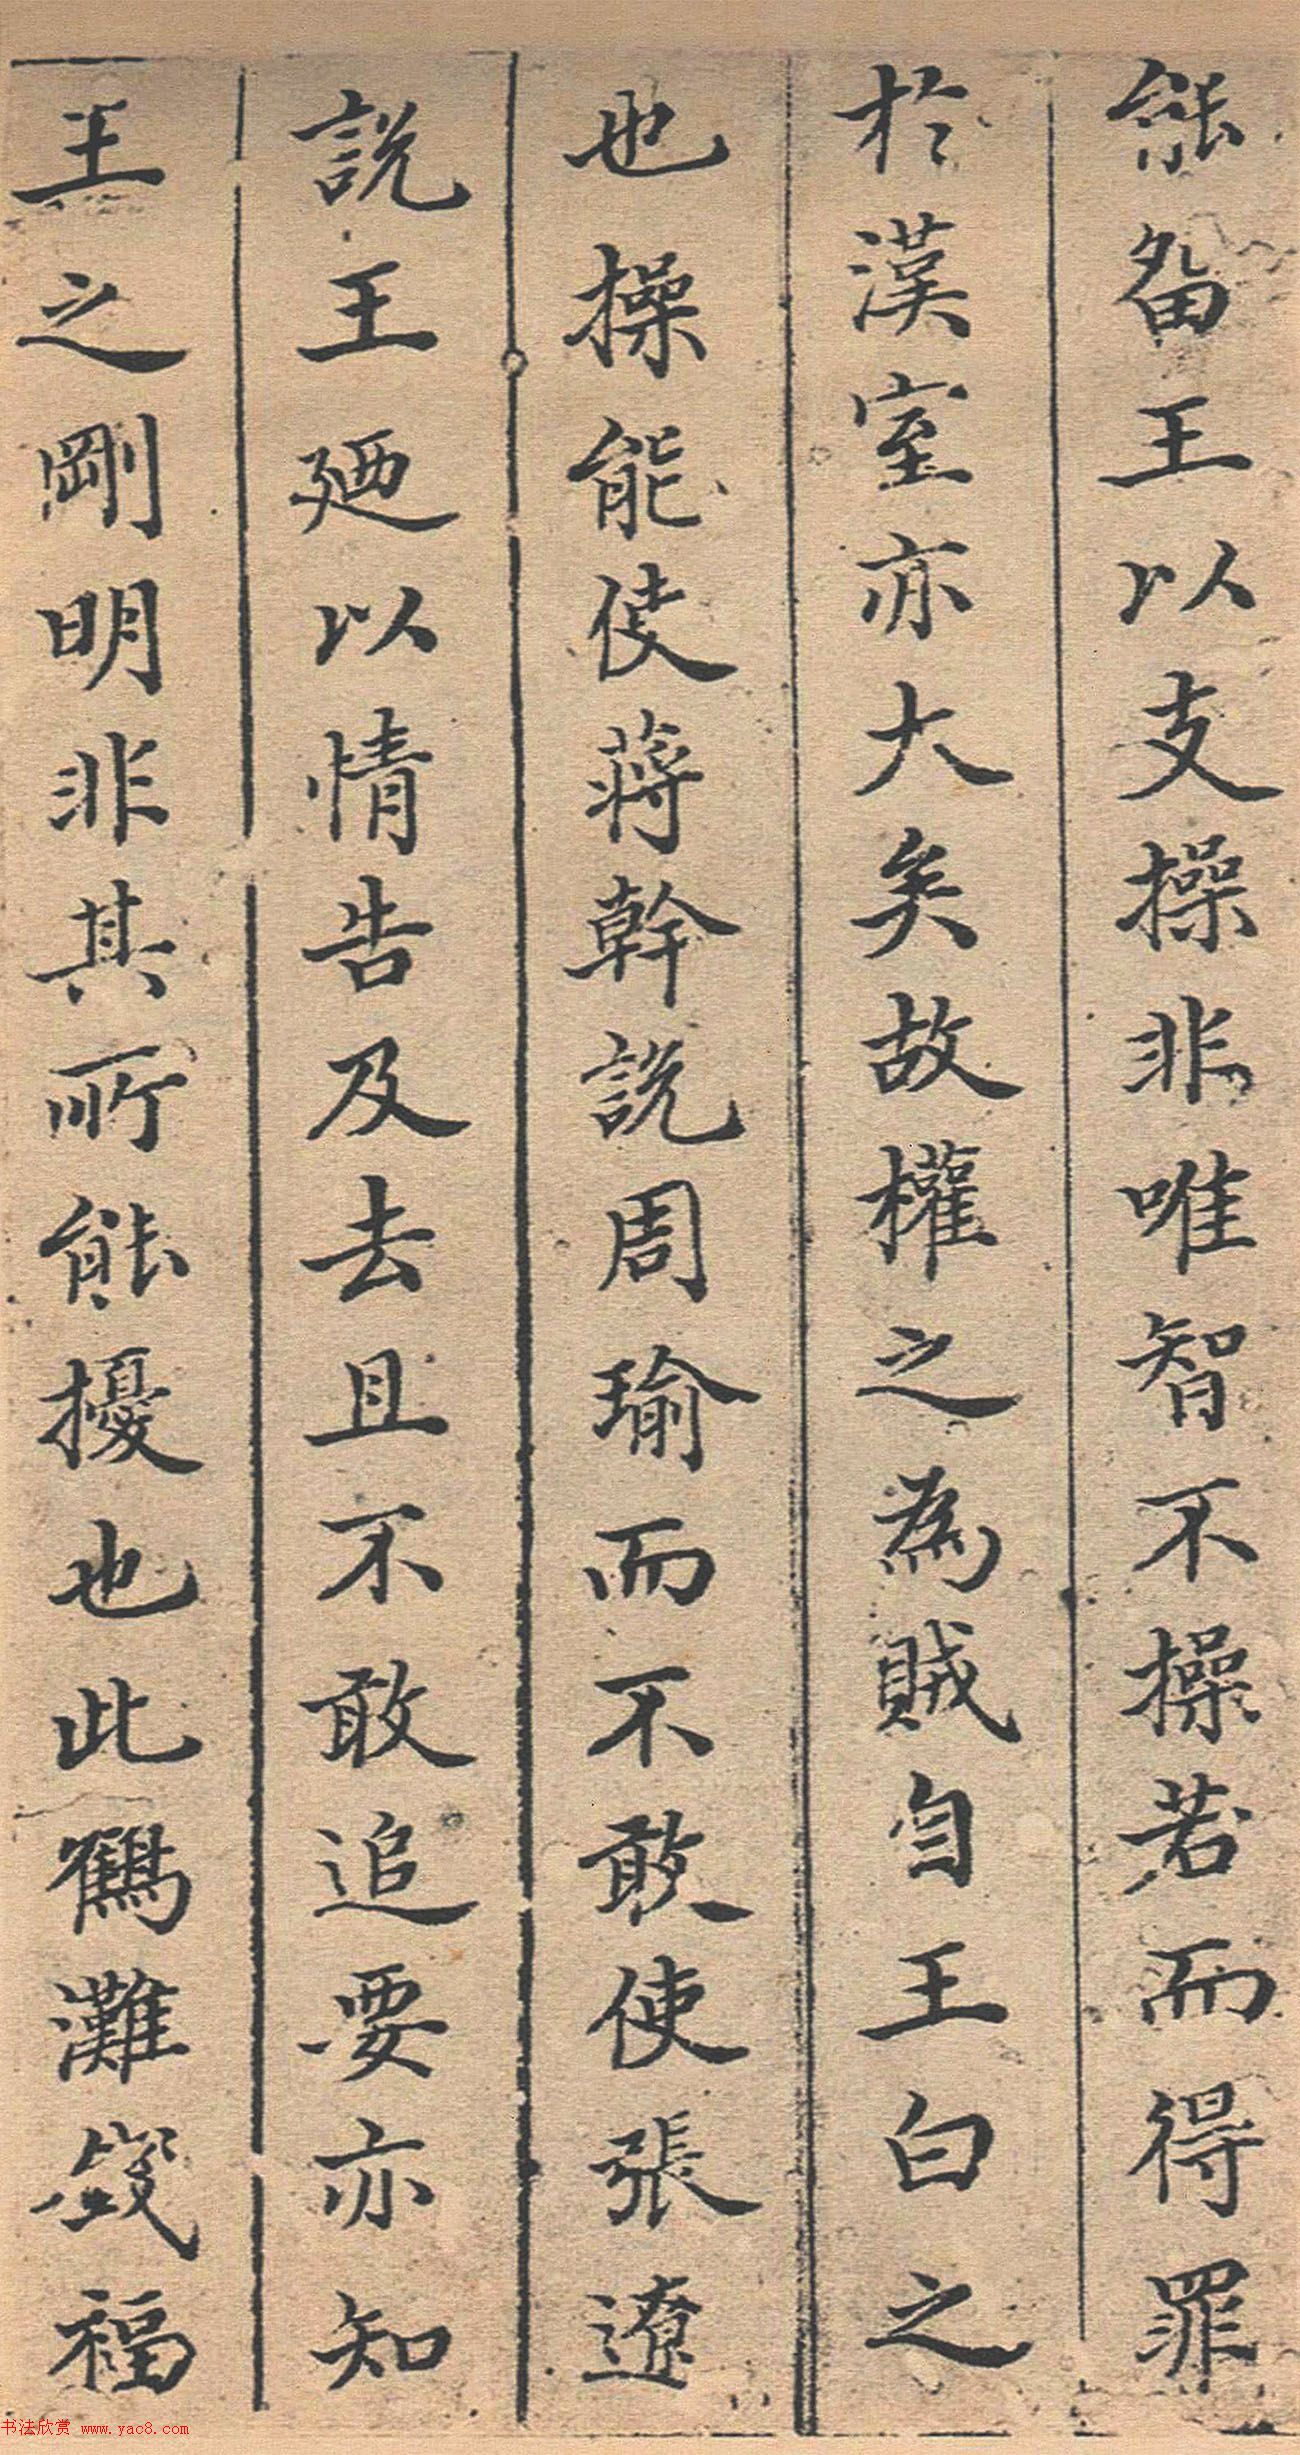 能留王以支操非唯智不操若而得罪
於漢室亦大矣故權之為賊自王白之
也操能使蔣幹說周瑜而不敢使張遼
說王廼以情告及去且不敢追要亦知
王之剛明非其所能擾也此鶴灘箋福
书法欣赏 www.yac8.com